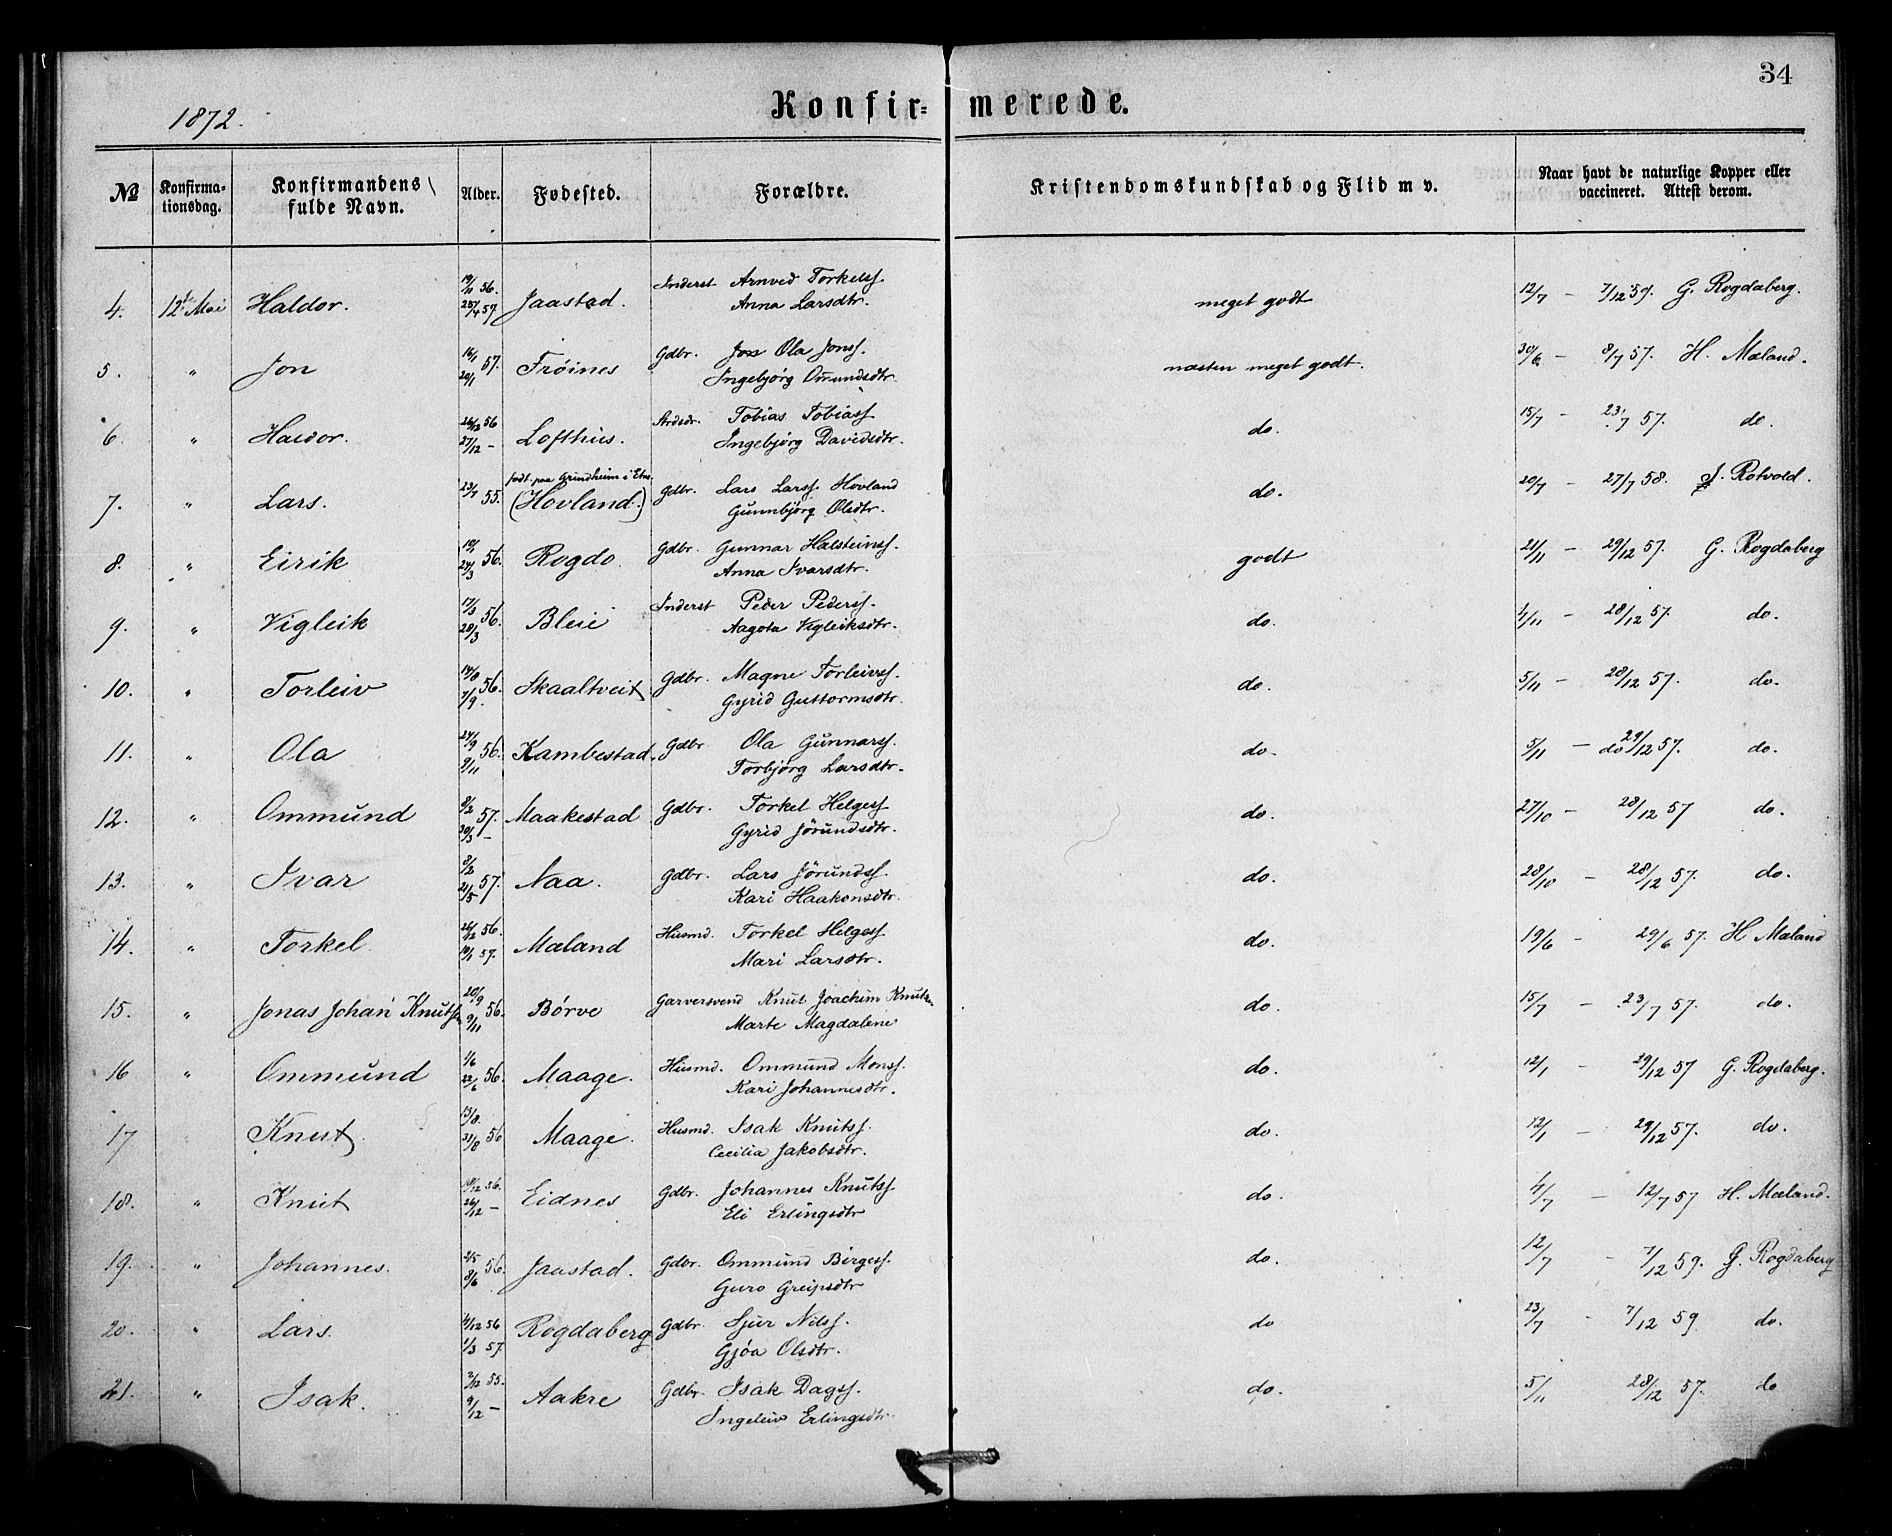 34
1872.
Konfir= merede.
№ Konfirma-tionsdag. Konfirmandens fulde Navn. Alder. Fødested. Forældre. Kristendomskundskab og Flid m v. Naar havt de naturlige Kopper eller vaccineret. Attest derom.
4. 12t Mai Haldor. 19/11 56. 25/4 57. Jaastad. Inderst Arnved Torkelsf. Anna Larsdtr. meget godt 12/7 — 7/12 59. G. Rogdaberg.
5. " Jon 16/1 57. 20/1 Frøines Gdbr. Jon Ola Jonsf. Ingebjørg Omundsdtr. næsten meget godt. 30/6 — 8/7 57. H. Mæland.
6. " Haldor. 26/12 56 27/12 — Lofthus. Strdsdr. Tobias Tobiasf. Ingebjørg Davidsdtr. do. 15/7 — 23/7 57. do.
7. " Lars. 23/7 55. født paa Grindheim i Etne. (Hovland.) Gdbr. Lars Larsf. Hovland Gunnbjørg Olsdtr. do. 20/7 — 27/7 58. J. Rotvold.
8. " Eirik 19/1 56. 24/3 Rogdo. Gdbr. Gunnar Halsteinsf. Anna Ivarsdtr. godt 21/11 — 29/12 57. G. Rogdaberg
9. " Vigleik 17/3 56. 28/3 Bleie Inderst Peder Pedersf. Aagota Vigleiksdtr. do. 4/11 — 28/12 57. do.
10. " Torleiv 14/8 56. 7/9. Skaaltveit Gdbr. Magne Torleivsf. Gyrid Guttormsdtr. do. 5/11 — 28/12 57. do.
11. " Ola 24/9 56. 9/11 Kambestad. Gdbr Ola Gunnarsf. Torbjørg Larsdtr. do. 5/11 — do 29/12 57. do.
12. " Ommund 8/2 57. 20/3 — Maakestad Gdbr. Torkel Helgesf. Gyrid Jörundsdtr. do. 27/10 — 28/12 57 do.
13. " Ivar 8/2 57. 21/5 Naa. Gdbr. Lars Jörundsf. Kari Haakonsdtr. do. 28/10 — 28/12 57. do.
14. " Torkel. 26/12 56. 10/1 57. Mæland Husmd. Torkel Helgesf Mari Larsdtr. do. 19/6 — 29/6 57. H Mæland
15. " Jonas Johan Knutsen 20/9 56. 9/11 Børve Garversvend Knut Joachim Knutsen Marte Magdalene do. 15/7 — 23/7 57. do.
16 " Ommund 1/6 56. 22/6 Maage. Husmd. Ommund Monsf. Kari Johannesdtr. do. 12/1 — 29/12 57 G. Rogdaberg.
17 " Knut 13/8. 56 31/8 Maage. Husmd. Isak Knutsf. Cecilia Jakobsdtr. do. 12/1 — 29/12 57. do.
18. " Knut 18/12 56. 26/12 — Eidnes Gdbr. Johannes Knutsf. Eli Erlingsdtr do. 4/7 — 12/7 57 H. Mæland.
19. " Johannes. 2/5 56. 8/6 Jaastad. Gdbr. Ommund Børgesf. Guro Greipsdtr do. 12/7 - 7/12 59. G. Rogdaberg
20. " Lars. 4/12 56 1/3 57. Rogdaberg Gdbr. Sjur Nilsf. Gjøa Olsdtr. do 23/7 - 7/12 59 do.
21. " Isak. 2/12 55. 9/12 — Aakre Gdbr. Isak Dagsf. Ingeleiv Erlingsdtr do. 5/11 28/12 57. do